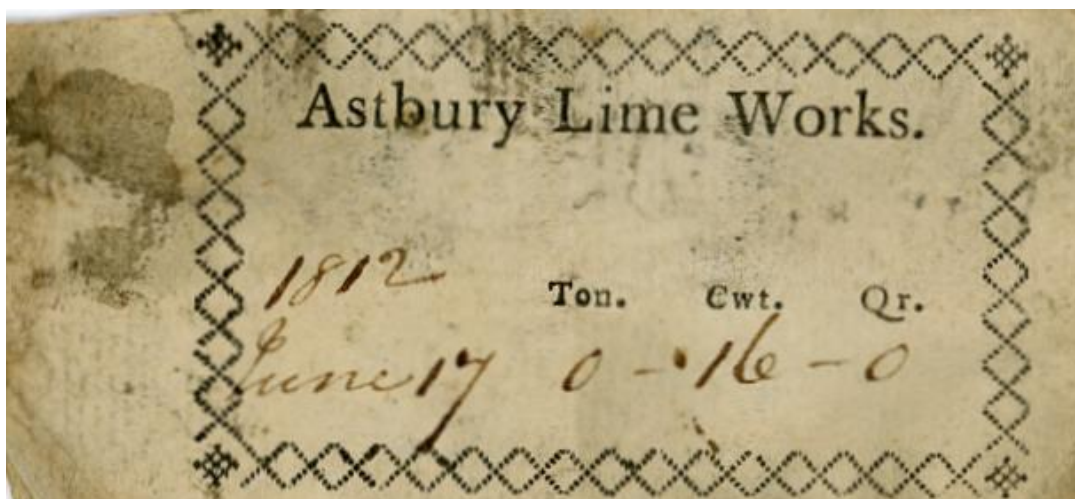 Astbury Lime Works.
1812 Ton. Cwt. Qr.
June 17 0 - 16 - 0